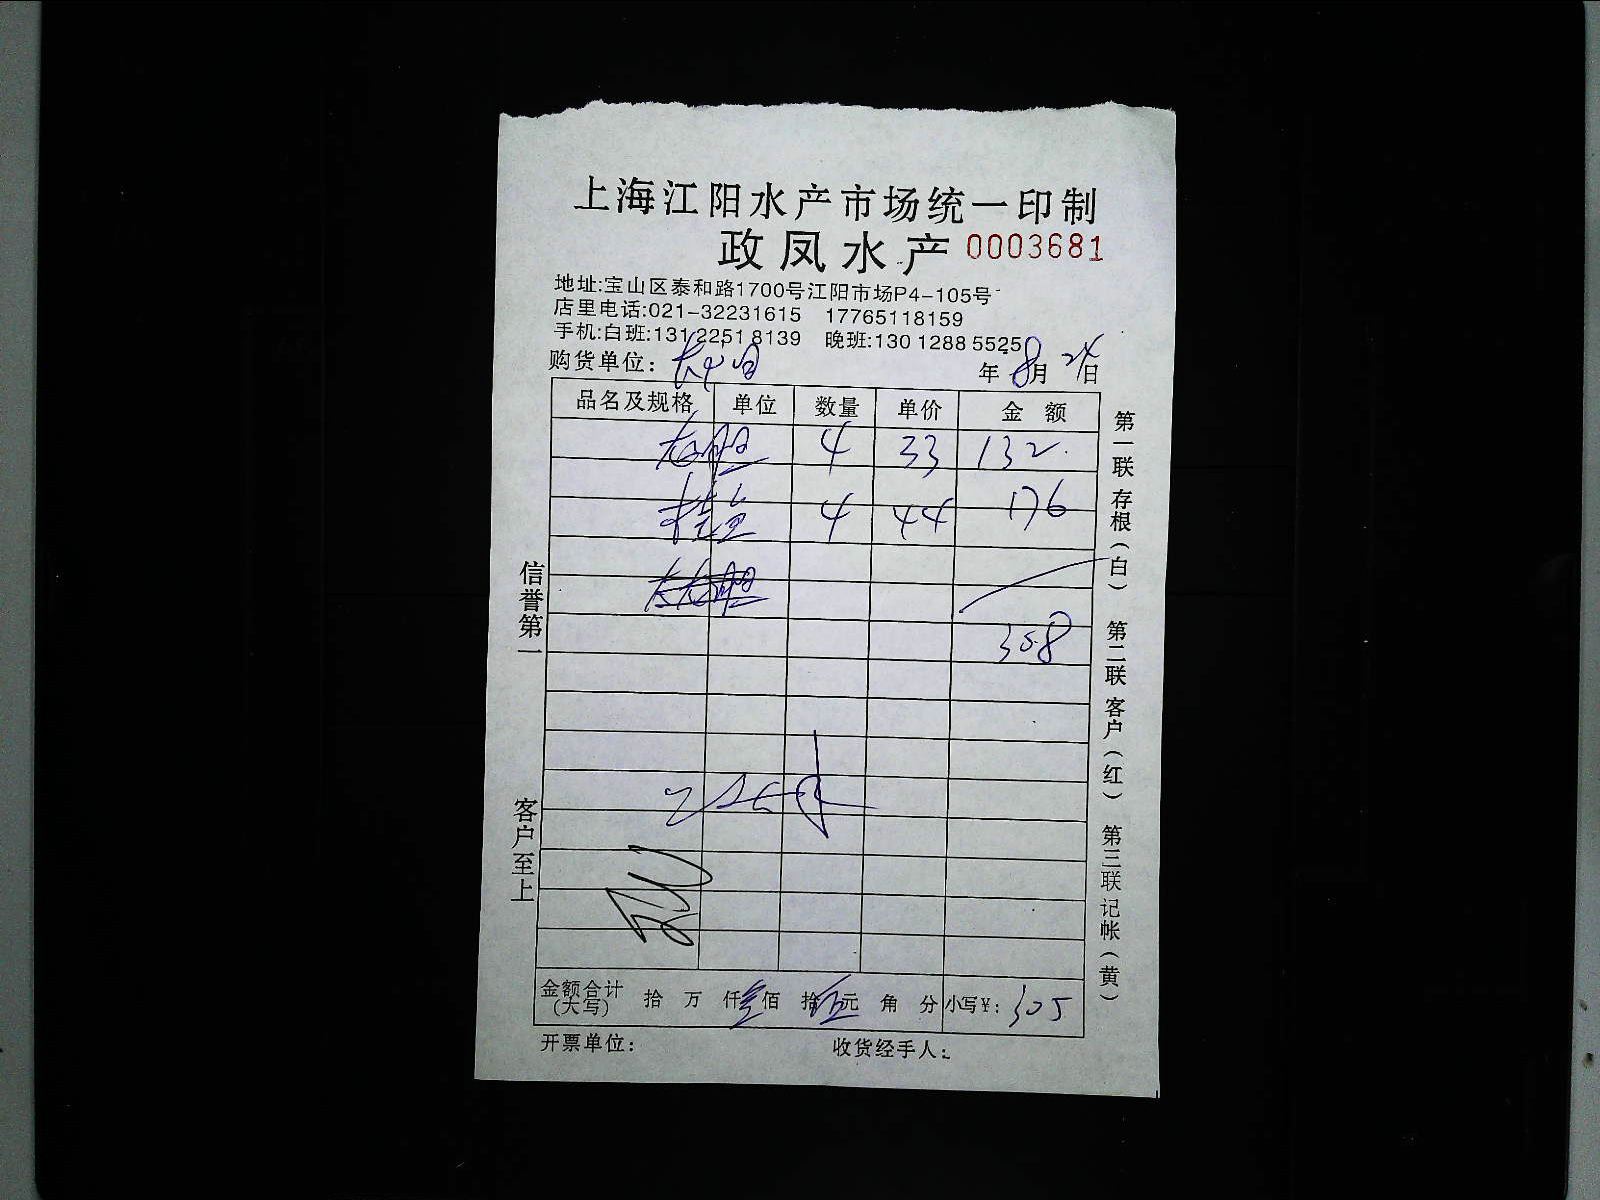 上海江阳水产市场统一印制
政凤水产 0003681
地址:宝山区泰和路1700号江阳市场P4-105号
店里电话:021-32231615 17765118159
手机:白班:131 2251 8139 晚班:130 1288 5525
购货单位: 年 8月 24日
品名及规格 单位 数量 单价 金额
4 33 132.
桂鱼 4 44 176
308
金额合计(大写) 拾 万 仟 叁佰 拾 伍元 角 分 小写¥: 305
开票单位: 收货经手人:
信誉第一
客户至上
第一联存根(白) 第二联客户(红) 第三联记帐(黄)